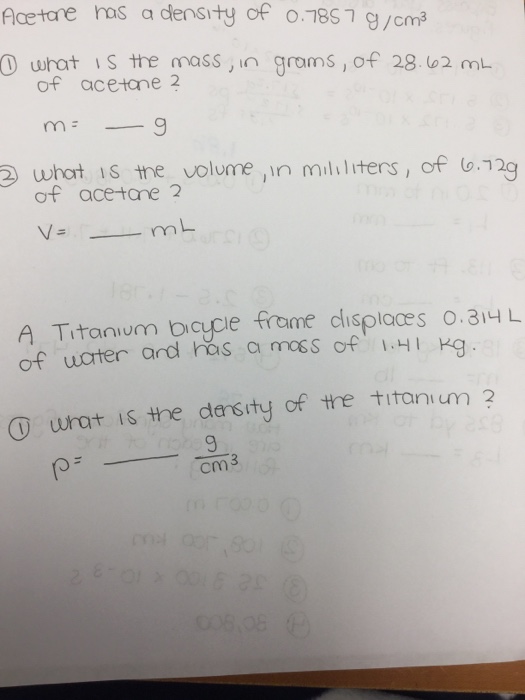 Acetone has a density of 0.7857 g/cm³
① what is the mass, in grams, of 28.62 mL
of acetone?
m= __ g
② what is the volume, in mililiters, of 6.72g
of acetone?
V= __ mL
A Titanium bicycle frame displaces 0.314 L
of water and has a mass of 1.41 kg.
① what is the density of the titanium?
p= __ g/cm³